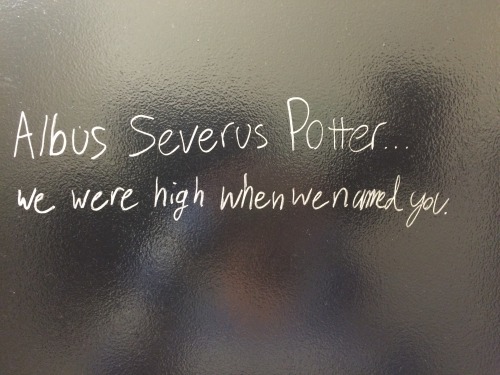 Albus Severus Potter...
we were high when we named you.